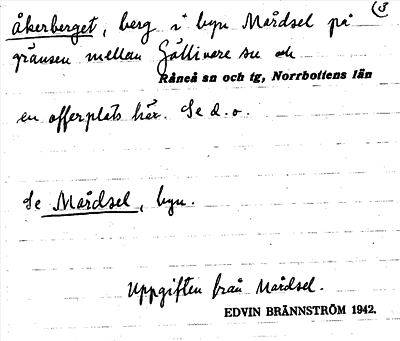 (3
åkerberget, berg i byn Mårdsel på
gränsen mellan Gällivare sn och
Råneå sn och tg, Norrbottens län
en offerplats här. Se d. o.
Se Mårdsel, byn.
Uppgiften från Mårdsel.
EDVIN BRÄNNSTRÖM 1942.